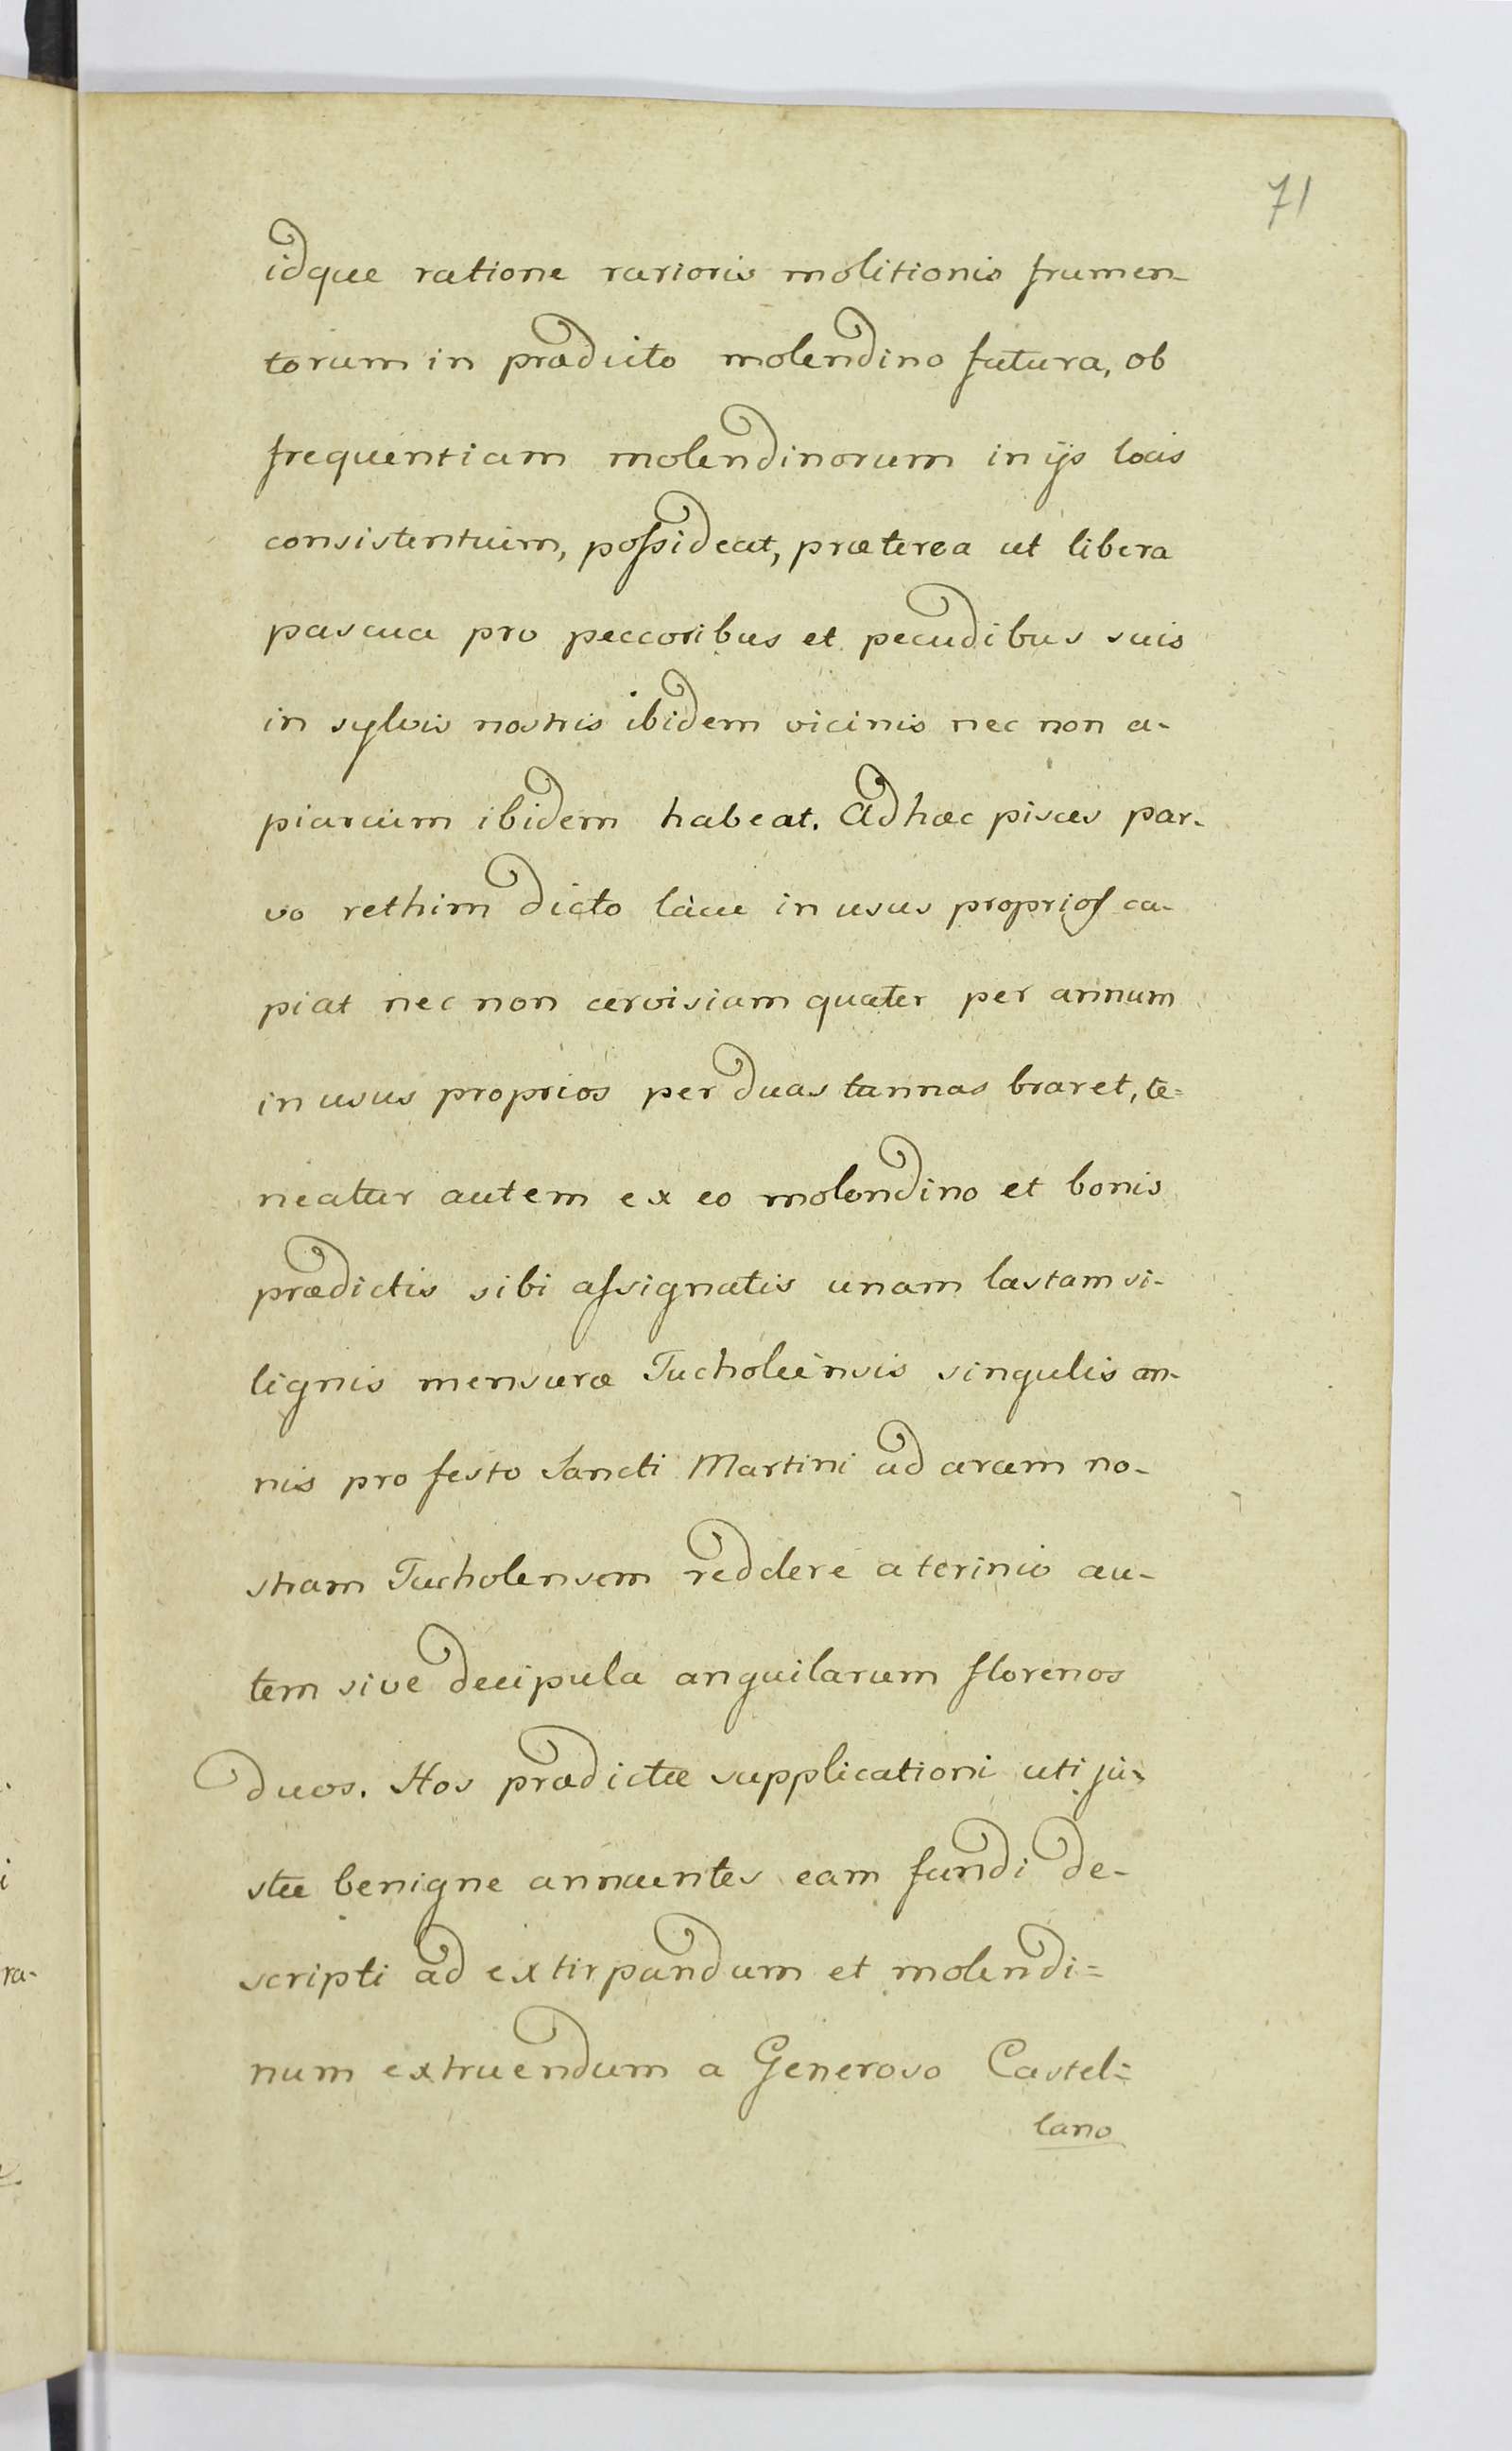 71
idque ratione rarioris molitionis frumen-
torum in prædicto molendino futura, ob
frequentiam molendinorum in ijs locis
consistentium, possideat, præterea ut libera
pascua pro peccoribus et pecudibus suis
in sylvis nostris ibidem vicinis nec non a-
piarium ibidem habeat. Ad hæc pisces par-
vo rethim dicto lacu in usus proprios ca-
piat nec non cervisiam quater per annum
in usus proprios per duas tunnas braxet, te=
neatur autem ex eo molendino et bonis
prædictis sibi assignatis unam lastam si-
lignis mensuræ Tucholiensis singulis an-
nis pro festo Sancti Martini ad arcem no-
stram Tucholensem reddere a terinio au-
tem sive decipula anguilarum florenos
duos. Nos prædictæ supplicationi uti ju-
stæ benigne annuentes eam fundi de-
scripti ad extirpandum et molendi=
num extruendum a Generoso Castel=
lano
ra-